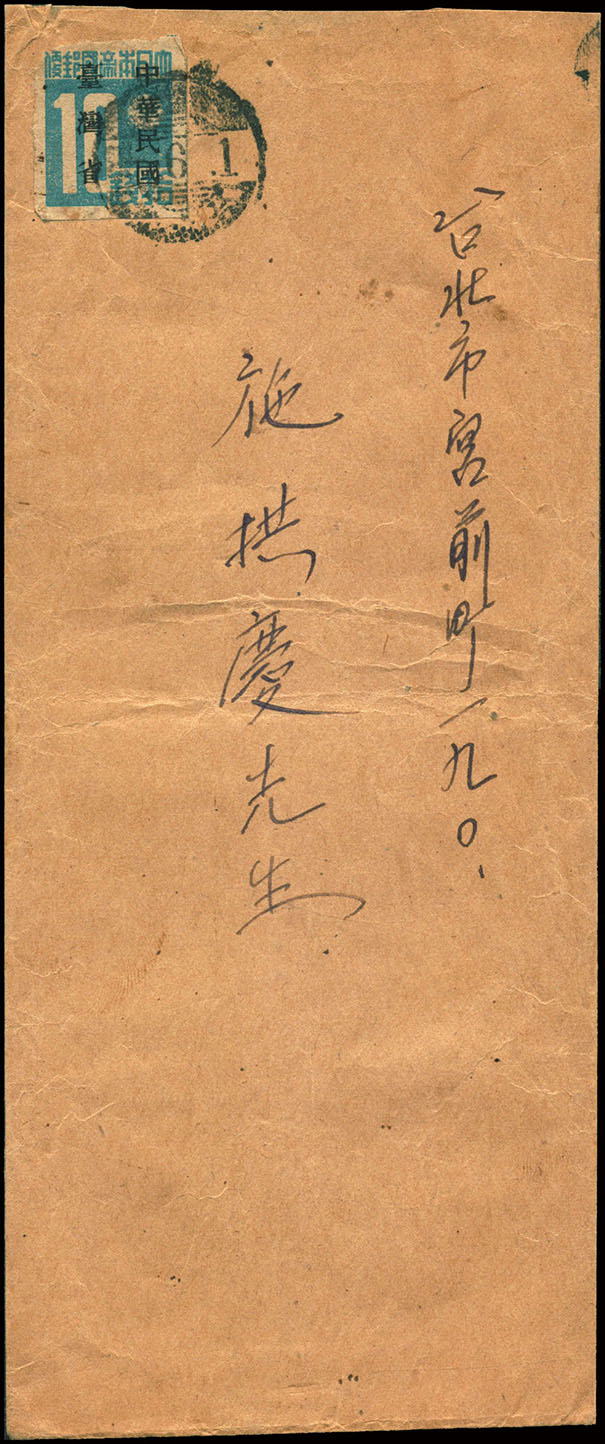 大日本帝國郵便
中華民國
臺灣省
10
拾錢
.1
台北市宮前町一九〇.
施拱慶先生.